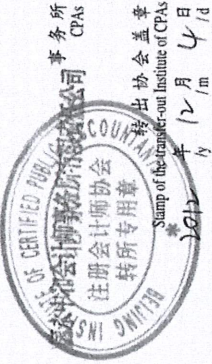 事务所
CPAs
INSTITUTE OF CERTIFIED PUBLIC ACCOUNTANTS
BEIJING
注册会计师协会
转所专用章
转出协会盖章
Stamp of the transfer-out Institute of CPAs
2012年12月4日
/y /m /d